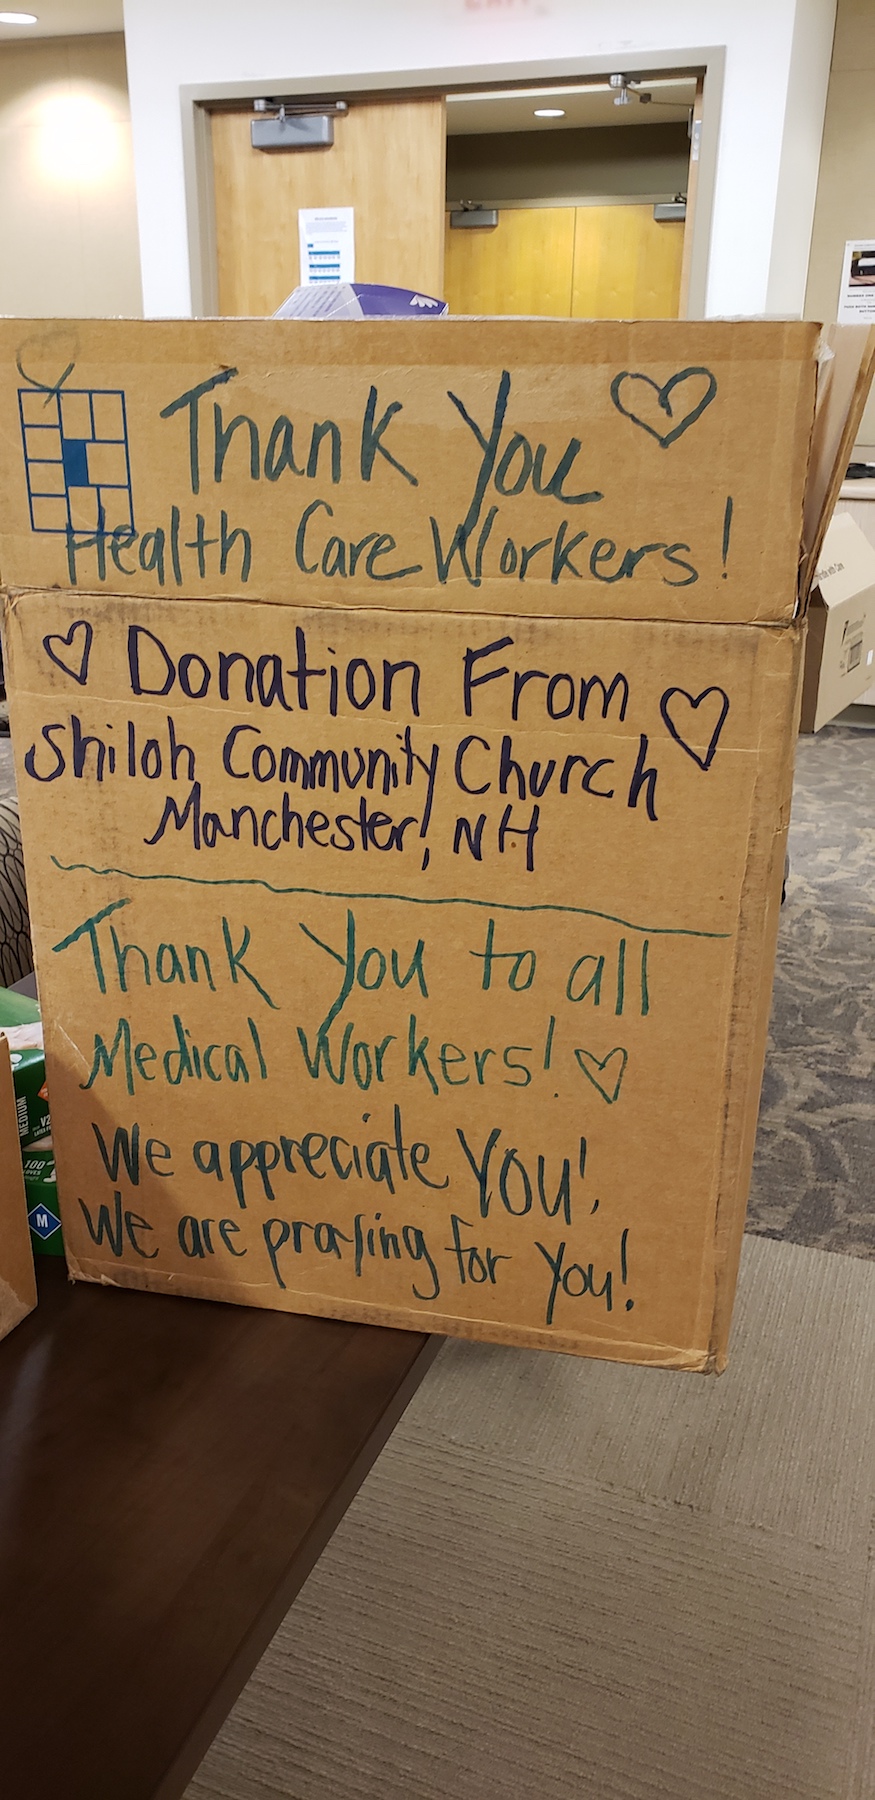 Thank You
Health Care Workers!
Donation From
Shiloh Community Church
Manchester, NH
Thank You to all
Medical Workers!
We appreciate YOU!
We are praying for you!
MEDIUM
100
M